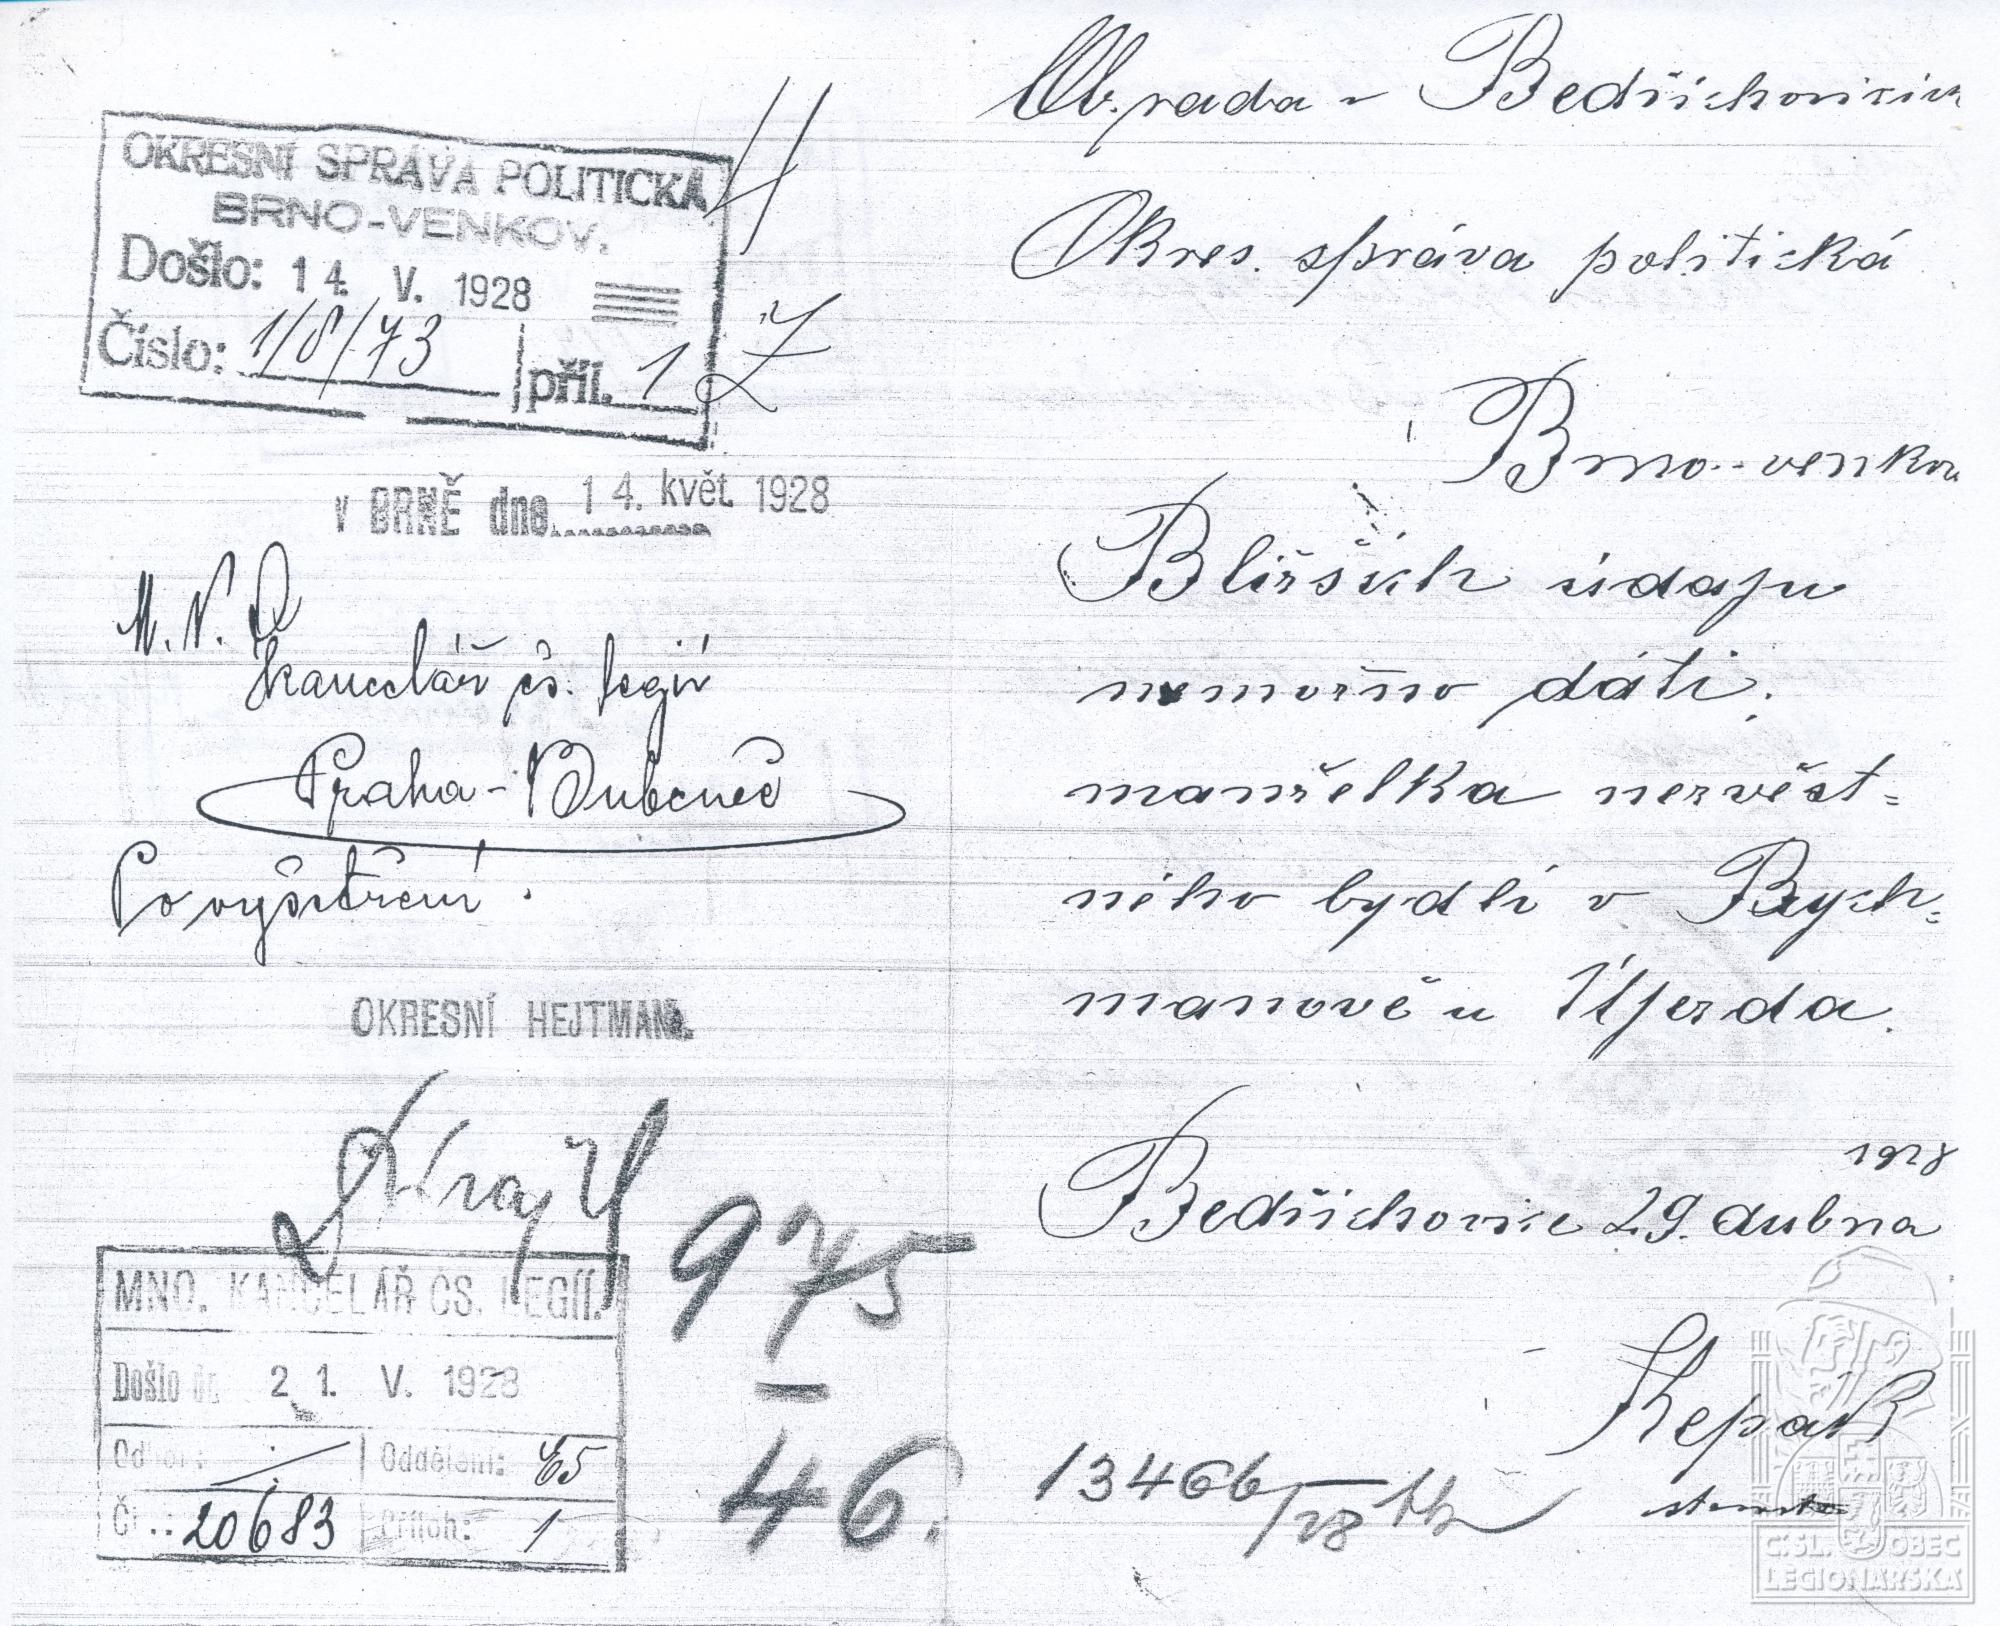 OKRESNÍ SPRÁVA POLITICKÁ
BRNO-VENKOV.
Došlo: 14. V. 1928
Číslo: 1/8/73 příl. 1
V BRNĚ dne 14. květ. 1928
M. N. O
kancelář čs. legií
Praha-Bubeneč
Po vyšetření.
OKRESNÍ HEJTMAN.
MNO. KANCELÁŘ ČS. LEGIÍ.
Došlo 21. V. 1928
Oddělení: 65
20683 Příloh: 1
975
–
46.
Ob. rada v Bedřichovicích
Okres. správa politická
Brno-venkov
Bližších údaju
nemožno dáti.
manželka nezvěst=
ného bydlí v Bych=
manově u Újezda.
1928
Bedřichovice 29. dubna
Řepařk
13466/28
Č.SL. OBEC
LEGIONÁŘSKÁ